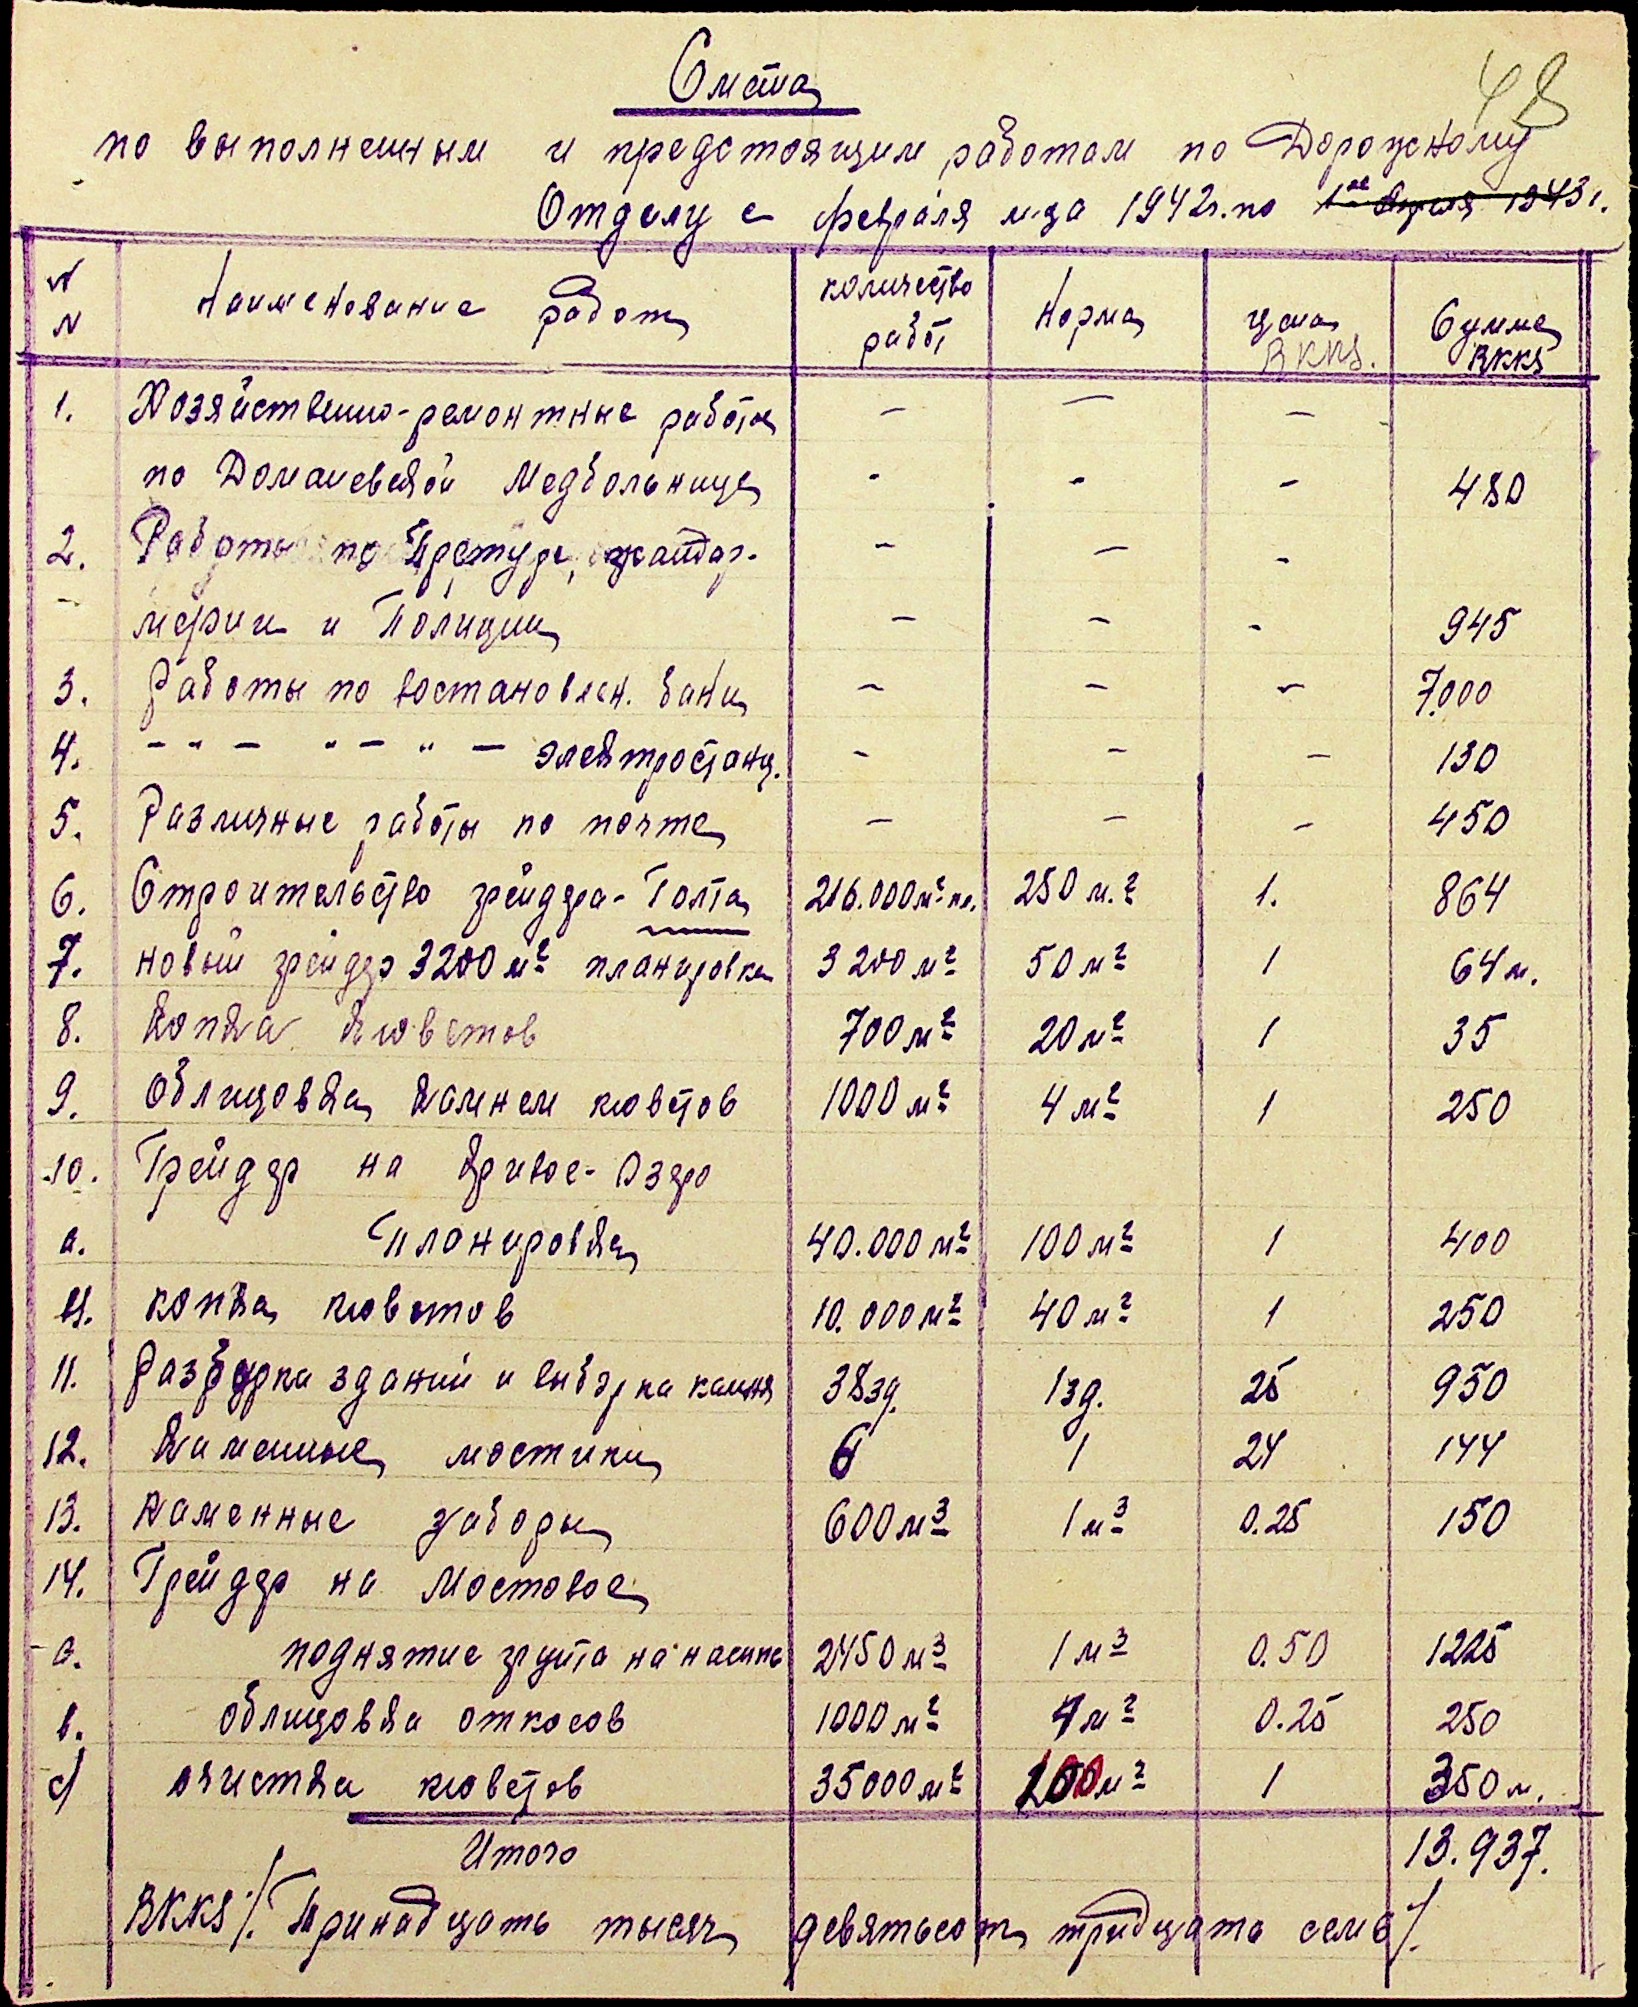 48
Смета
по выполненным и предстоящим работам по Дорожному
Отделу с февраля м-ца 1942г. по 1ое Апреля 1943г.
N N Наименование работ количество работ Норма цена RKKS. Сумма RKKS
1. Хозяйственно-ремонтные работы — — —
по Доманевской Медбольнице - - - 480
2. Работы по Претуре, жандар- — — -
мерии и Полиции — — - 945
3. Работы по востановлен. бани — — — 7.000
4. — " — " — " — электростанц. - — — 130
5. Различные работы по почте — — — 450
6. Строительство грейдера - Голта 216.000 м² пл. 250 м.² 1. 864
7. новый грейдер 3200 м² планировка 3200 м² 50 м² 1 64 м.
8. Копка кюветов 700 м² 20 м² 1 35
9. Облицовка камнем кюветов 1000 м² 4 м² 1 250
10. Грейдер на Кривое-Озеро
а. Планировка 40.000 м² 100 м² 1 400
копка кюветов 10.000 м² 40 м² 1 250
11. Разборка зданий и выборка камня 38 зд. 1 зд. 25 950
12. Каменные мостики 6 1 24 144
13. Каменные заборы 600 м³ 1 м³ 0.25 150
14. Грейдер на Мостовое
а. поднятие грунта на насыпь 2450 м³ 1 м³ 0.50 1225
в. облицовка откосов 1000 м² 4 м² 0.25 250
с) очистка кюветов 35000 м² 100 м² 1 350 м.
Итого 13.937.
RKKS /. Тринадцать тысяч девятьсот тридцать семь /.